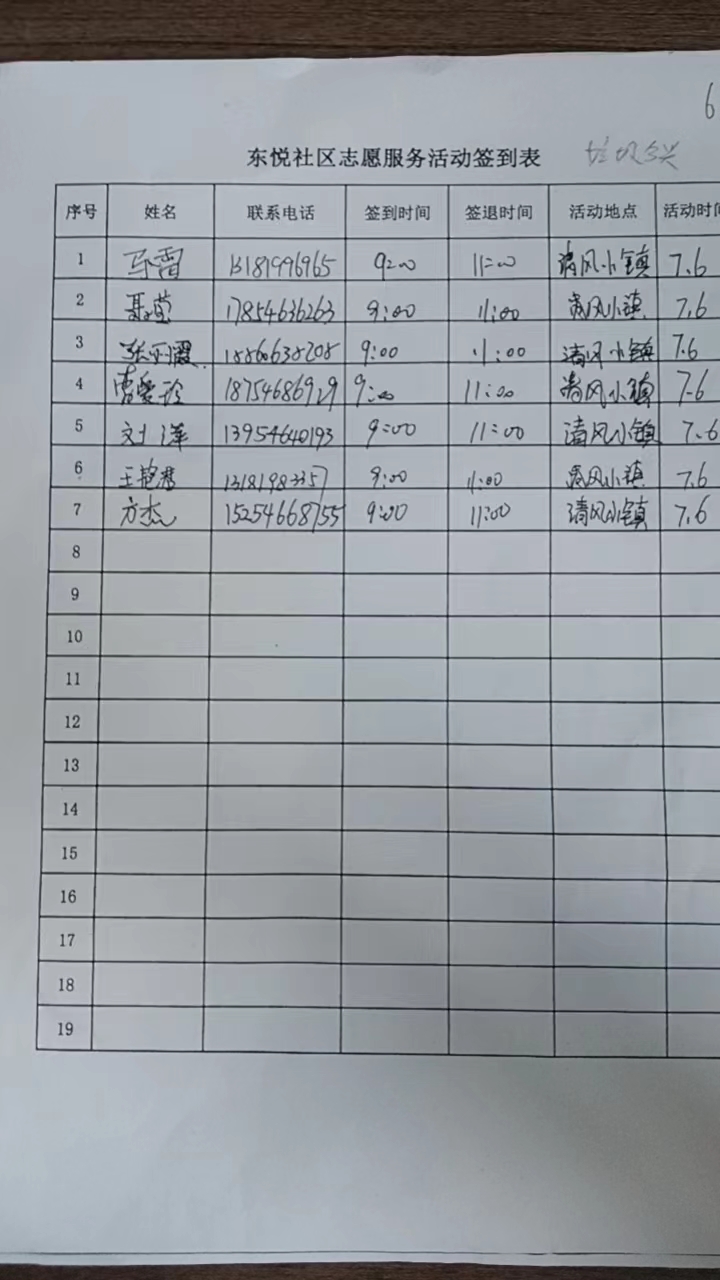 6
东悦社区志愿服务活动签到表 垃圾分类
序号 姓名 联系电话 签到时间 签退时间 活动地点 活动时间
1 马雷 13181996965 9:00 11:00 清风小镇 7.6
2 17854636263 9:00 11:00 清风小镇 7.6
3 18860638208 9:00 11:00 清风小镇 7.6
4 曹爱玲 18754686929 9:00 11:00 清风小镇 7.6
5 刘洋 13954640193 9:00 11:00 清风小镇 7.6
6 王艳君 13181983357 9:00 11:00 清风小镇 7.6
7 方杰 15254668755 9:00 11:00 清风小镇 7.6
8
9
10
11
12
13
14
15
16
17
18
19